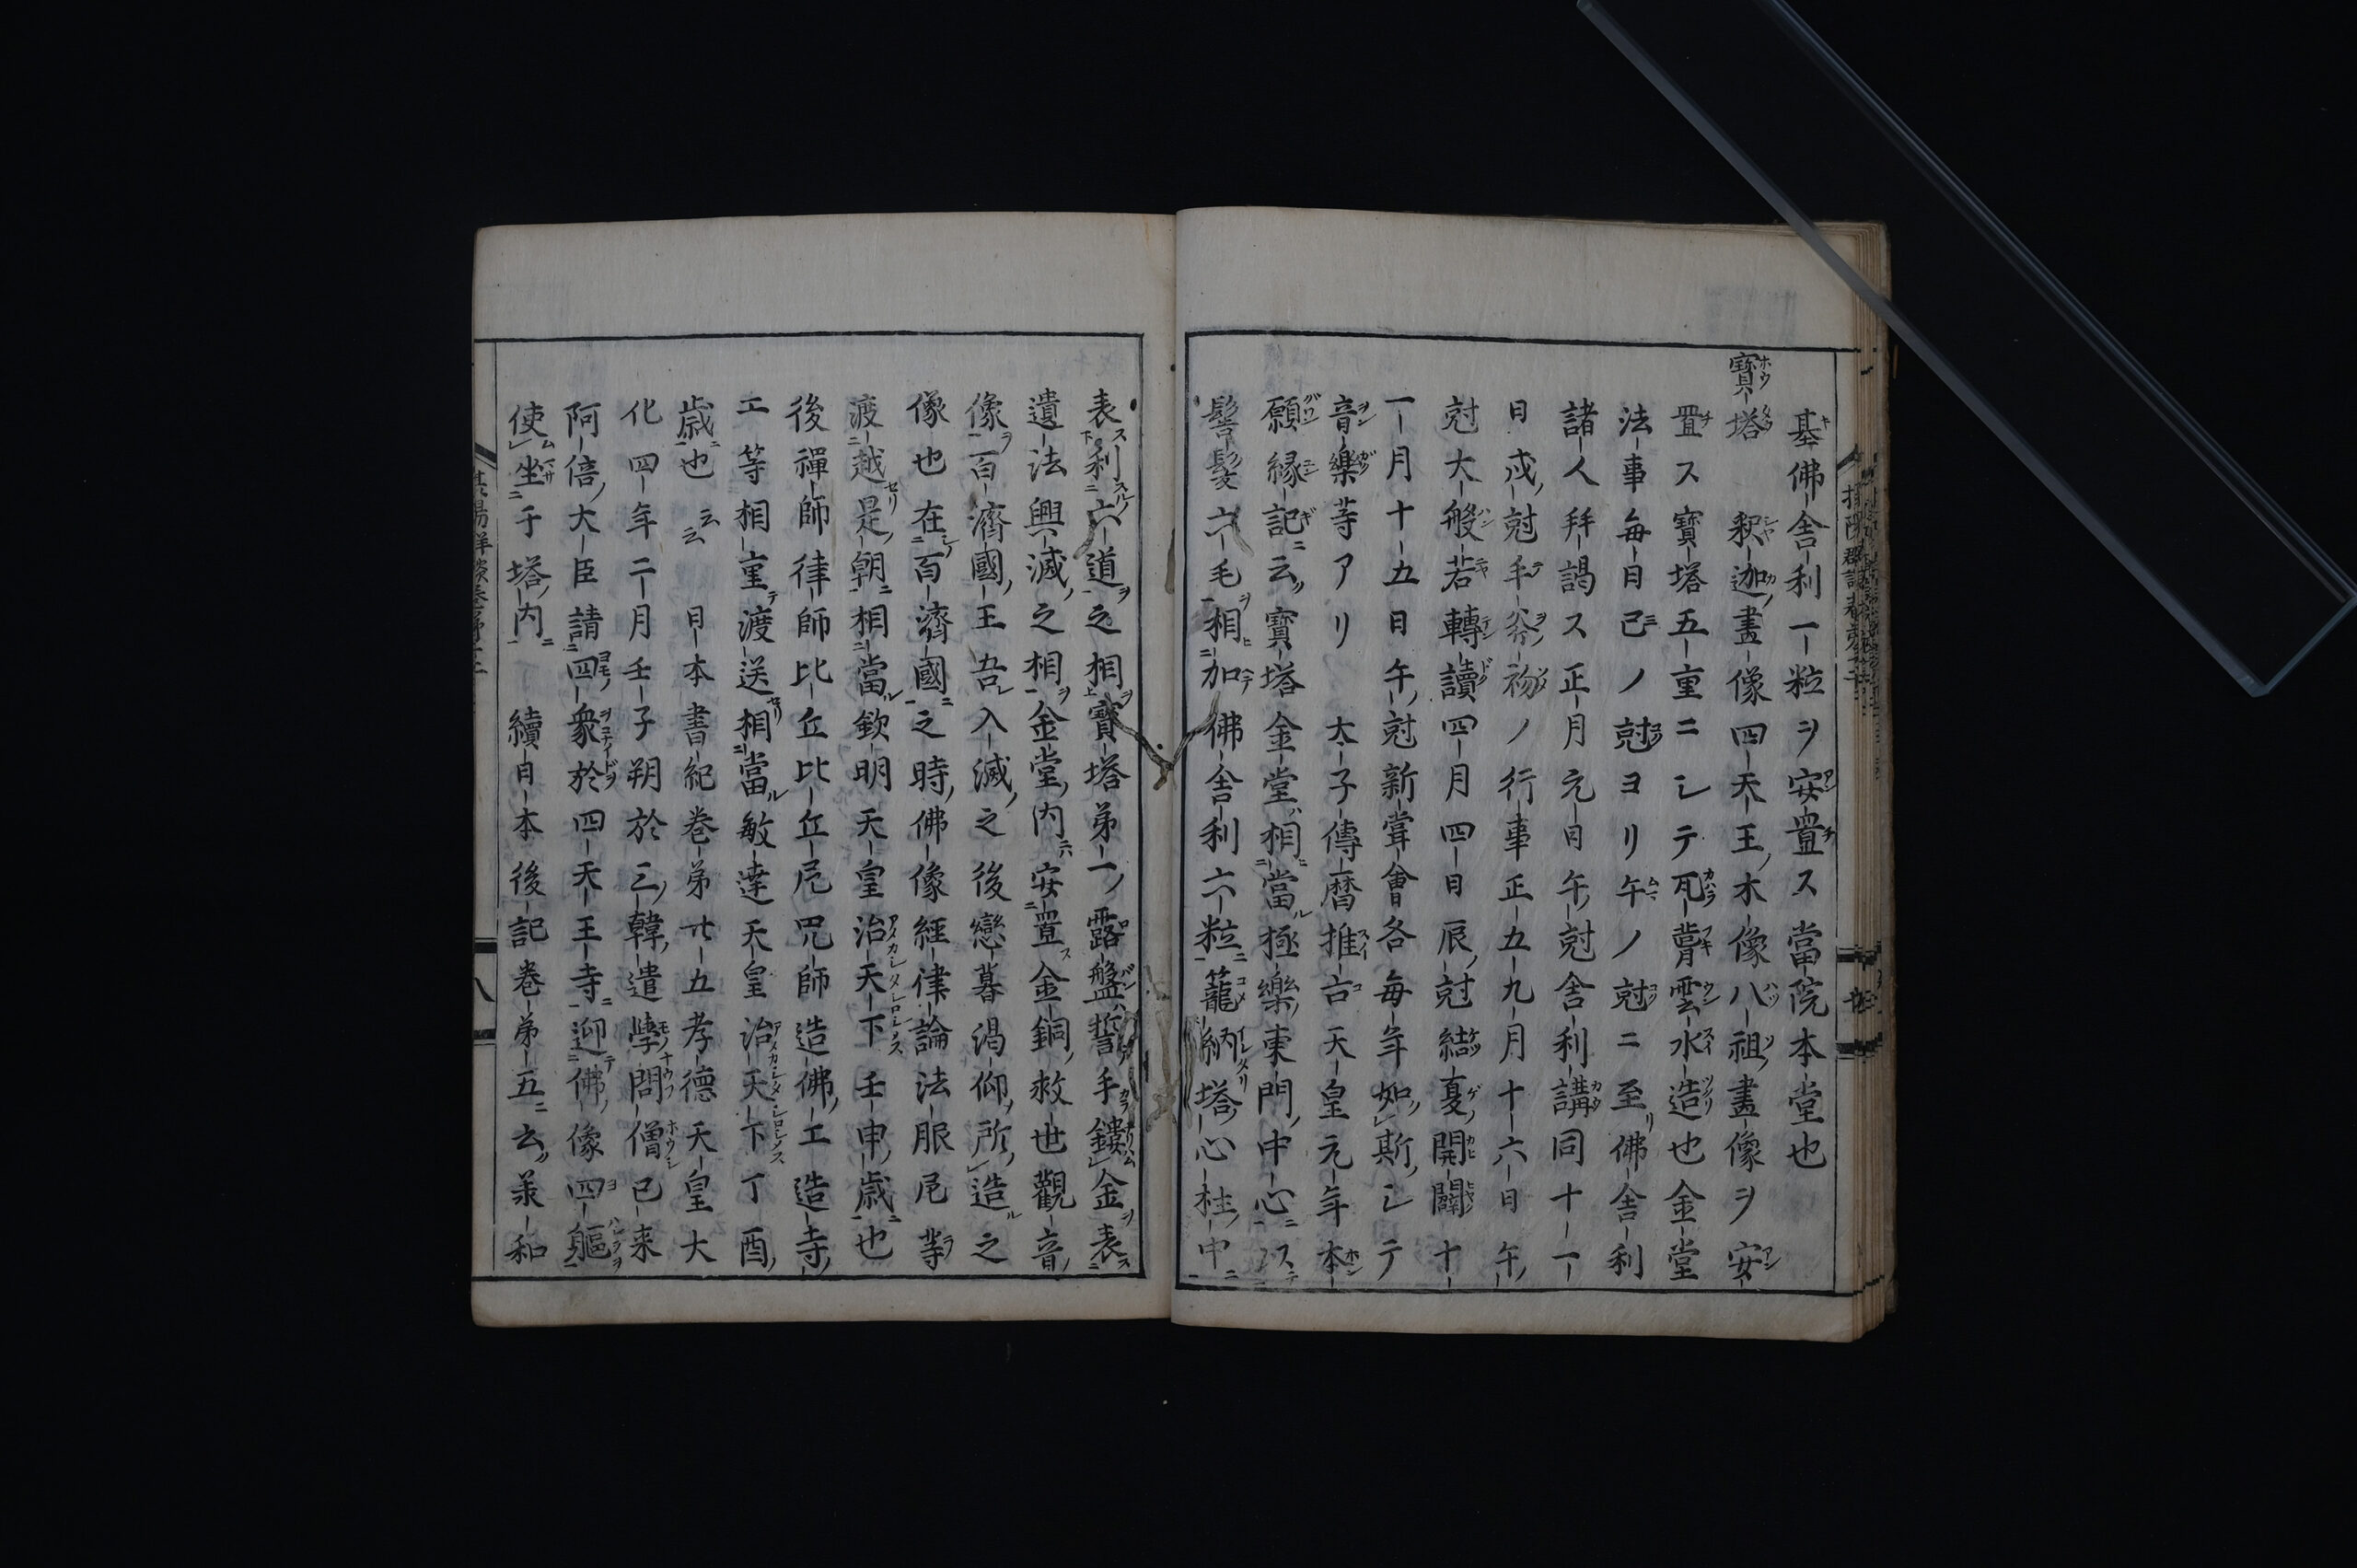 基佛舎利一粒ヲ安置ス當院本堂也
寶塔 釈迦畫像四天王木像八祖畫像ヲ安
置ス寶塔五重ニシテ瓦葺雲水造也金堂
法事毎日巳ノ尅ヨリ午ノ尅ニ至佛舎利
諸人拜謁ス正月元日午尅舎利講同十一
日戌尅手斧初ノ行事正五九月十六日午
尅大般若轉讀四月四日辰尅結夏開闢十
一月十五日午尅新甞會各毎年如斯シテ
音樂等アリ 太子傳暦推古天皇元年本
願縁記云寶塔金堂相當極樂東門中心以
髻髪六毛相加佛舎利六粒籠納塔心柱中
表利六道之相寶塔第一露盤誓手鏤金表
遺法興滅之相金堂内安置金銅救世觀音
像百濟國王吾入滅之後戀暮渇仰所造之
像也在百濟國之時佛像經律論法服尼等
渡越是朝相當欽明天皇治天下壬申歳也
後禪師律師比丘比丘尼咒師造佛工造寺
工等相重渡送相當敏達天皇治天下丁酉
歳也云云 日本書紀巻第廿五孝德天皇大
化四年二月壬子朔於三韓遣學問僧已来
阿倍大臣請四衆於四天王寺迎佛像四軀
使坐于塔内 續日本後記巻第五云羕和
八